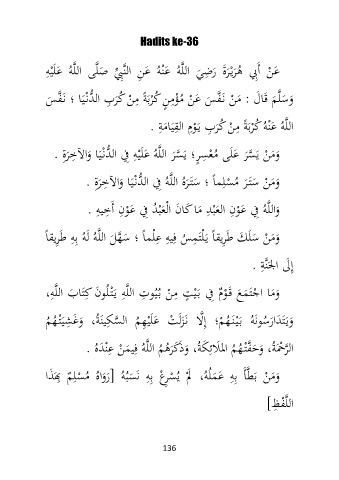 Hadits ke-36
عَنْ أَبِي هُرَيْرَةَ رَضِيَ اللَّهُ عَنْهُ عَنِ النَّبِيِّ صَلَّى اللَّهُ عَلَيْهِ
وَسَلَّمَ قَالَ : مَنْ نَفَّسَ عَنْ مُؤْمِنٍ كُرْبَةً مِنْ كُرَبِ الدُّنْيَا ؛ نَفَّسَ
اللَّهُ عَنْهُ كُرْبَةً مِنْ كُرَبِ يَوْمِ القِيَامَةِ .
وَمَنْ يَسَّرَ عَلَى مُعْسِرٍ؛ يَسَّرَ اللَّهُ عَلَيْهِ فِي الدُّنْيَا وَالآخِرَةِ .
وَمَنْ سَتَرَ مُسْلِماً ؛ سَتَرَهُ اللَّهُ فِي الدُّنْيَا وَالآخِرَةِ .
وَاللَّهُ فِي عَوْنِ العَبْدِ مَا كَانَ الْعَبْدُ فِي عَوْنِ أَخِيهِ .
وَمَنْ سَلَكَ طَرِيقاً يَلْتَمِسُ فِيهِ عِلْماً ؛ سَهَّلَ اللَّهُ لَهُ بِهِ طَرِيقاً
إِلَى الجَنَّةِ .
وَمَا اجْتَمَعَ قَوْمٌ فِي بَيْتٍ مِنْ بُيُوتِ اللَّهِ يَتْلُونَ كِتَابَ اللَّهِ،
وَيَتَدَارَسُونَهُ بَيْنَهُمْ؛ إِلَّا نَزَلَتْ عَلَيْهِمُ السَّكِينَةُ، وَغَشِيَتْهُمُ
الرَّحْمَةُ، وَحَفَّتْهُمُ المَلَائِكَةُ، وَذَكَرَهُمُ اللَّهُ فِيمَنْ عِنْدَهُ .
وَمَنْ بَطَّأَ بِهِ عَمَلُهُ، لَمْ يُسْرِعْ بِهِ نَسَبُهُ [رَوَاهُ مُسْلِمٌ بِهَذَا
اللَّفْظِ]
136